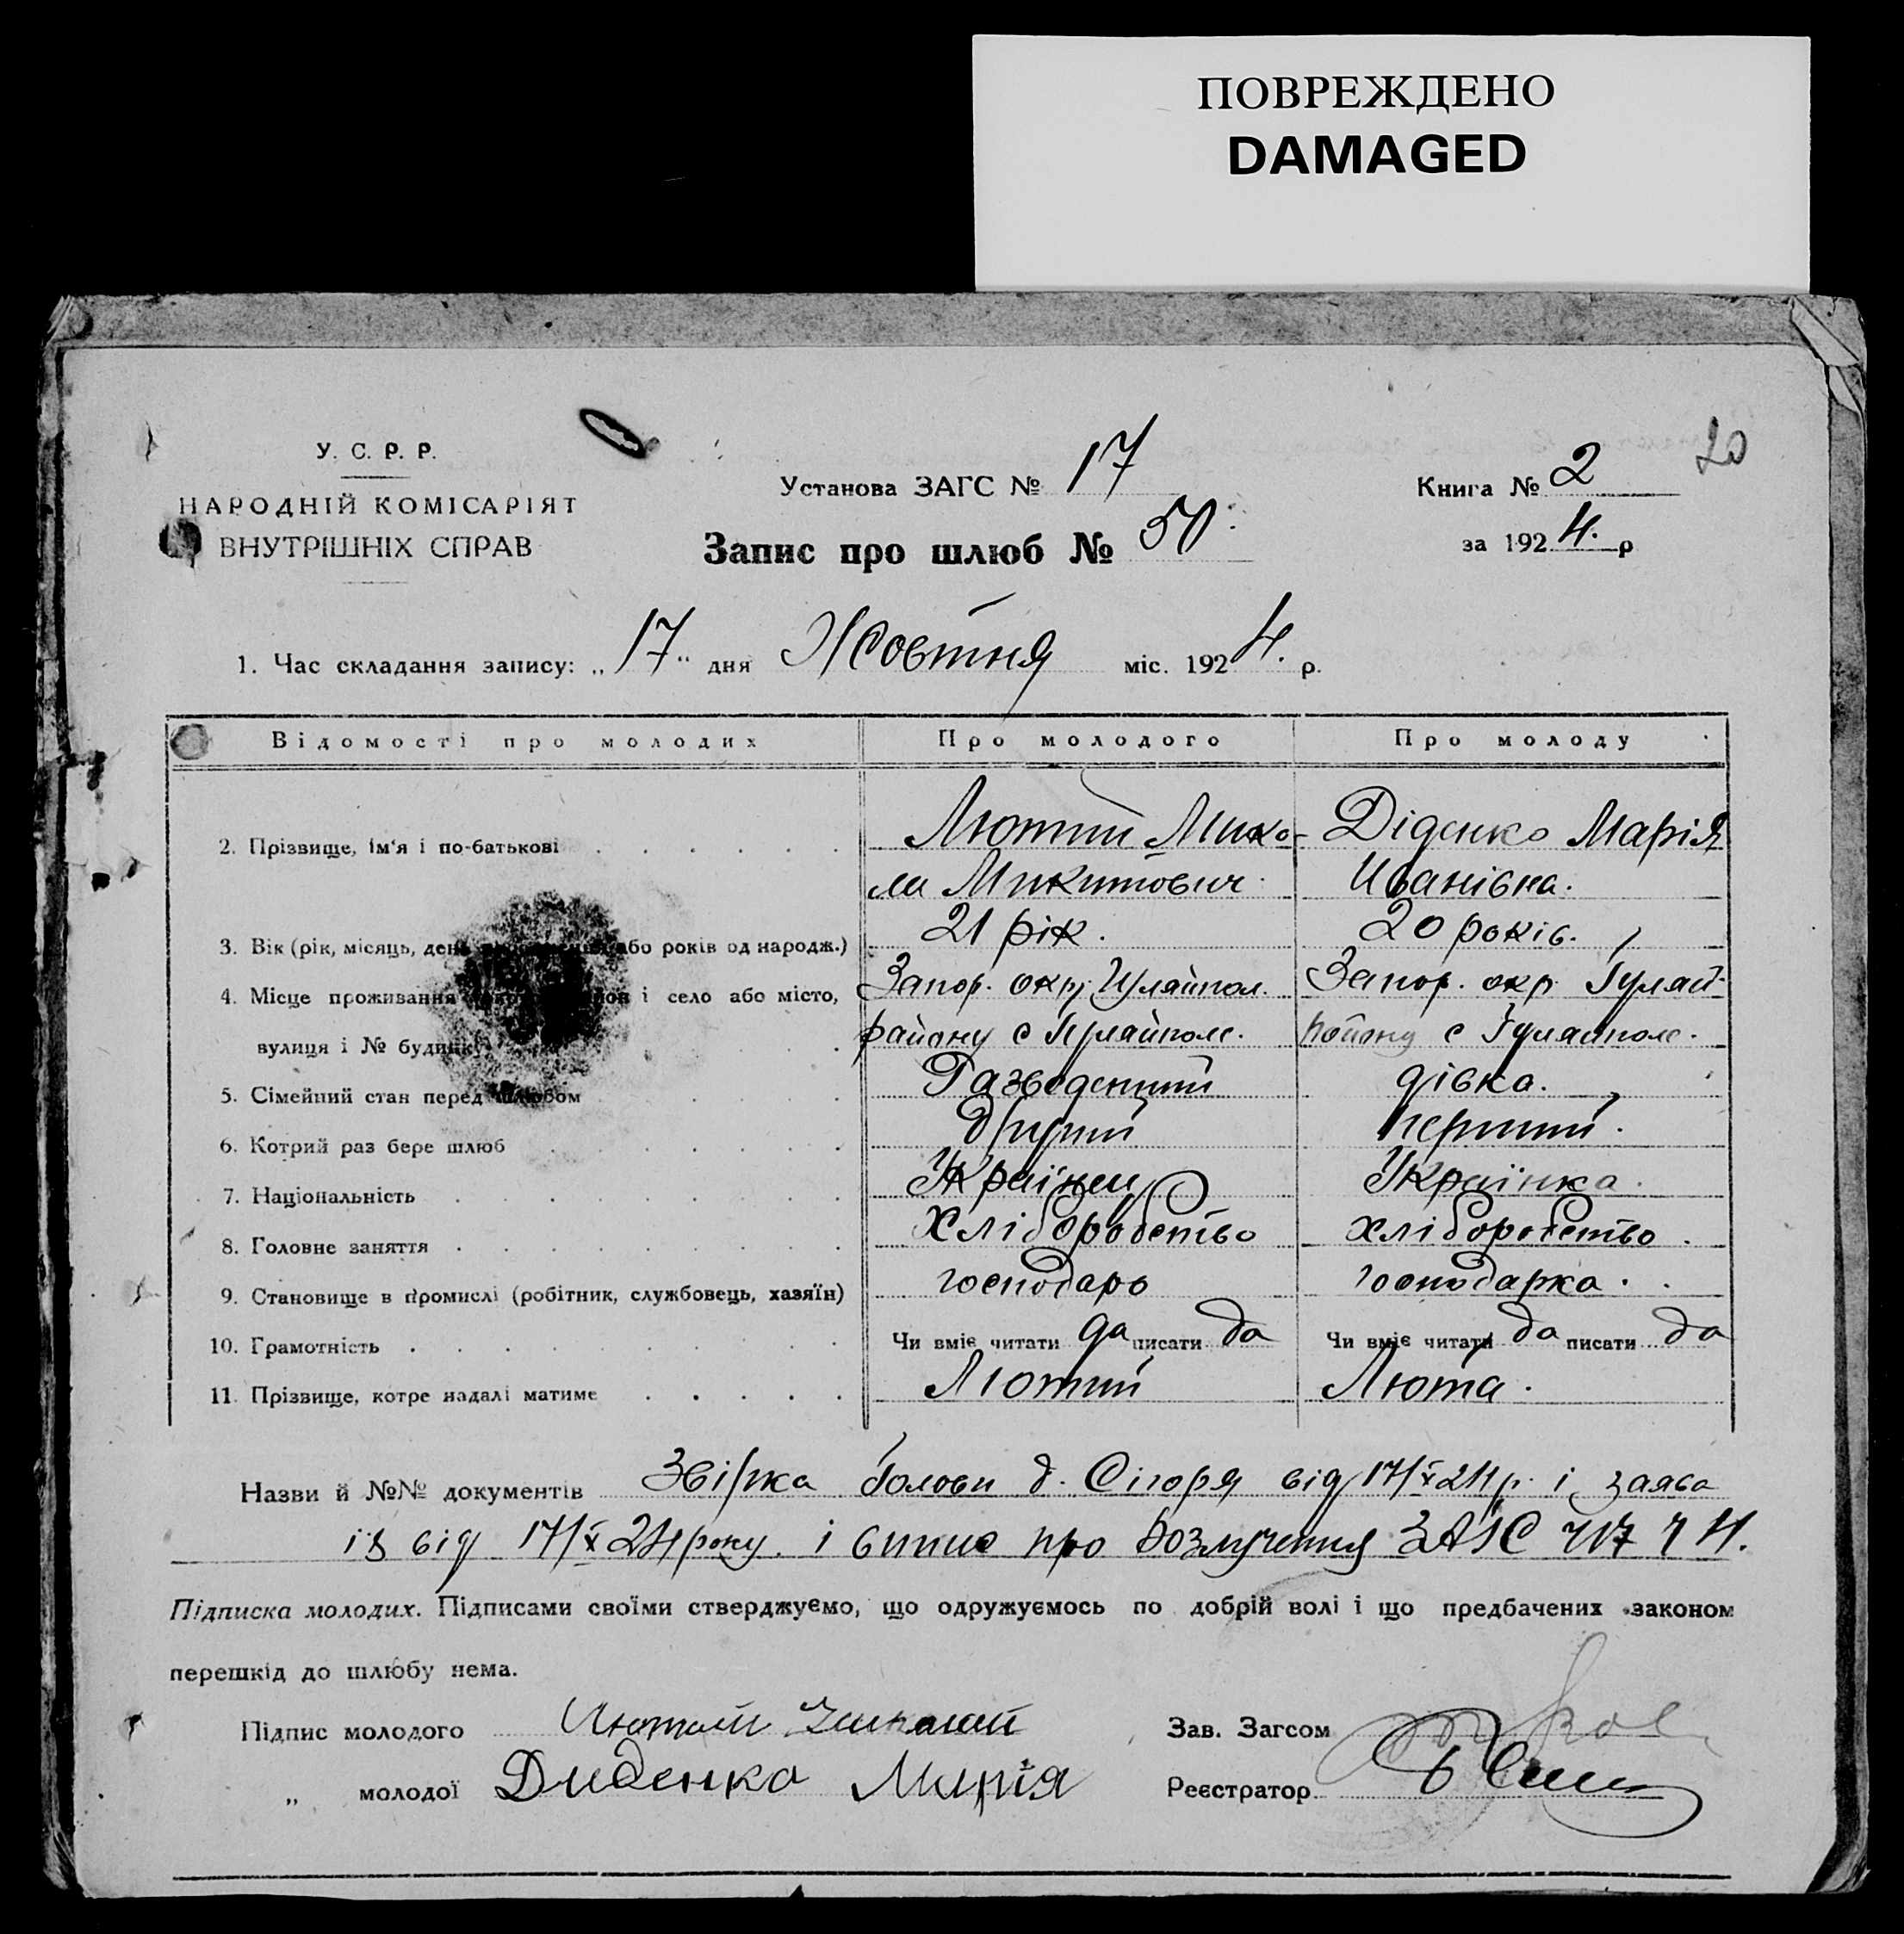 ПОВРЕЖДЕНО
DAMAGED
20
У. С. Р. Р.
НАРОДНІЙ КОМІСАРІЯТ
ВНУТРІШНІХ СПРАВ
Установа ЗАГС № 17
Книга № 2
Запис про шлюб № 50
за 1924. р
1. Час складання запису: „17“ дня Жовтня міс. 1924. р.
Відомості про молодих Про молодого Про молоду
2. Прізвище, ім'я і по-батькові Лютий Мико- Діденко Марія
ла Микитович Иванівна.
3. Вік (рік, місяць, день або років од народж.) 21 рік. 20 років.
4. Місце проживання і село або місто, Запор. окр. Гуляйпол. Запор. окр. Гуляй-
вулиця і № будинку району с Гуляйполе. району с Гуляйполе.
5. Сімейний стан перед шлюбом Разведений дівка.
6. Котрий раз бере шлюб другий перший.
7. Національність Українец Українка.
8. Головне заняття Хліборобство хліборобство.
9. Становище в промислі (робітник, службовець, хазяїн) господарь господарка.
10. Грамотність Чи вміє читати да писати да Чи вміє читати да писати да
11. Прізвище, котре надалі матиме Лютий Люта.
Назви й №№ документів Звірка Голови від 17/X 24 р. і заява
їх від 17/X 24 року. і випис про розлучення ЗАГС
Підписка молодих. Підписами своїми стверджуємо, що одружуємось по добрій волі і що предбачених законом
перешкід до шлюбу нема.
Підпис молодого Лютий
Зав. Загсом
„ молодої Диденко Марія
Реєстратор